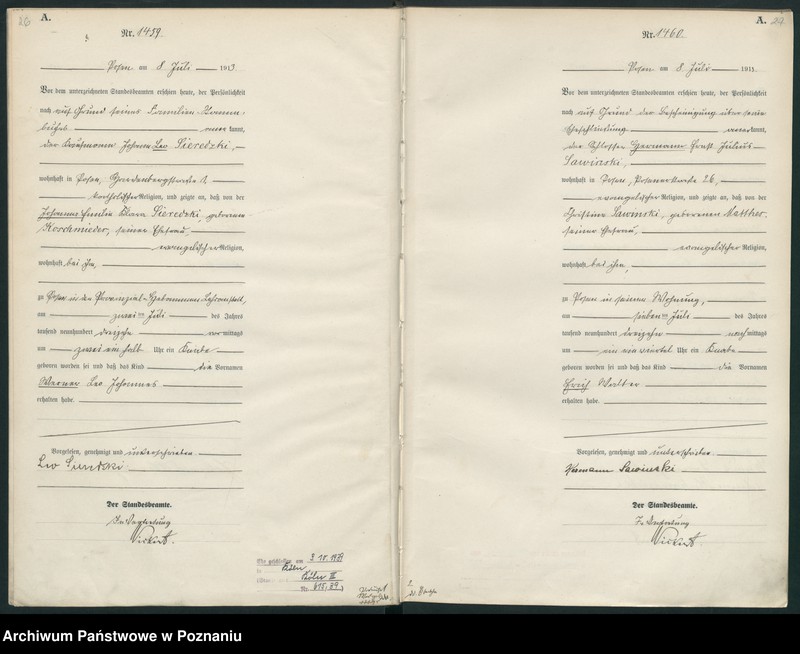 26
A.
Nr. 1459
Posen am 8. Juli 1913
Vor dem unterzeichneten Standesbeamten erschien heute, der Persönlichkeit
nach auf Grund seines Familien-Stamm-
buches anerkannt,
der Kaufmann Johann Leo Sieredzki,
wohnhaft in Posen, 1,
katholischer Religion, und zeigte an, daß von der
Johanna Emilie Klara Sieredzki geborenen
Korschmieder, seiner Ehefrau
evangelischer Religion,
wohnhaft bei ihm,
zu Posen in der Provinzial-Hebammen Lehranstalt,
am zweiten Juli des Jahres
tausend neunhundert dreizehn vormittags
um zwei ein halb Uhr ein Knabe
geboren worden sei und daß das Kind die Vornamen
Werner Leo Johannes
erhalten habe.
Vorgelesen, genehmigt und unterschrieben
Leo Sieredzki
Der Standesbeamte.
In Vertretung
Köln
Köln III
Nr. 618/39
A. 27
Nr. 1460
Posen am 8. Juli 1913.
Vor dem unterzeichneten Standesbeamten erschien heute, der Persönlichkeit
nach auf Grund der Bescheinigung über seine
Eheschließung anerkannt,
der Schlosser Hermann Ernst Julius
Sawinski,
wohnhaft in Posen, Posenerstraße 26,
evangelischer Religion, und zeigte an, daß von der
Christine Sawinski, geborenen Matthes,
seiner Ehefrau,
evangelischer Religion,
wohnhaft bei ihm,
zu Posen in seiner Wohnung,
am siebenten Juli des Jahres
tausend neunhundert dreizehn nachmittags
um ein ein viertel Uhr ein Knabe
geboren worden sei und daß das Kind die Vornamen
Erich Walter
erhalten habe.
Vorgelesen, genehmigt und unterschrieben
Hermann Sawinski
Der Standesbeamte.
In Vertretung
Archiwum Państwowe w Poznaniu